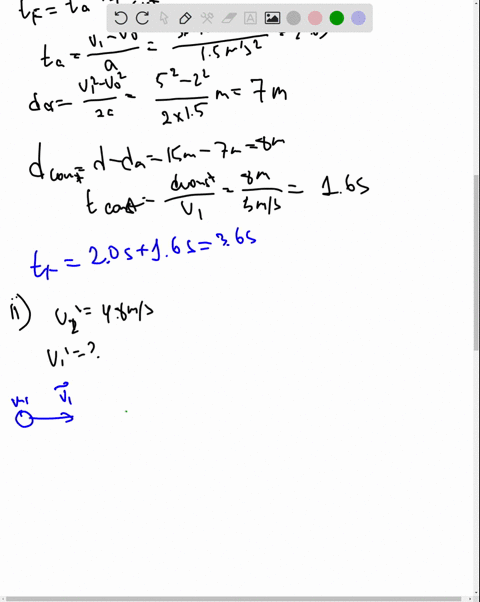 t_F = t_a
t_a = \frac{v_1 - v_0}{a} = \frac{}{1.5 m/s^2}
d_a = \frac{v_1^2 - v_0^2}{2a} = \frac{5^2 - 2^2}{2 \times 1.5} m = 7 m
d_{const} = d - d_a = 15m - 7m = 8m
t_{const} = \frac{d_{const}}{v_1} = \frac{8m}{5m/s} = 1.6s
t_F = 2.0s + 1.6s = 3.6s
ii) v_2' = 4.8m/s
v_1' = ?
m_1 \vec{v}_1
A